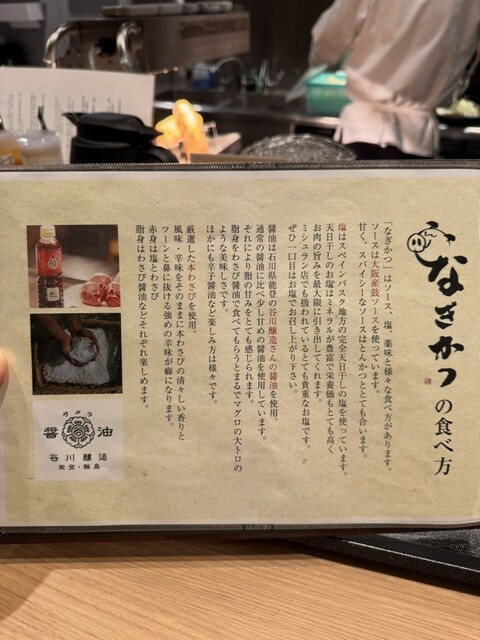 なぎかつの食べ方
「なぎかつ」はソース、塩、薬味と様々な食べ方があります。
ソースは大阪産鼓ソースを使っています。
甘く、スパイシーなソースはとんかつととても合います。
塩はスペインバスク地方の完全天日干しの塩を使っています。
天日干しのお塩はミネラルが豊富で栄養価もとても高く
お肉の旨みを最大限に引き出してくれます。
ミシュラン店でも扱われているとても貴重なお塩です。
ぜひ一口目はお塩でお召し上がり下さい。
醤油は石川県能登の谷川醸造さんの醤油を使用。
通常の醤油に比べ少し甘めの醤油を使用しています。
それにより脂の甘みをとても感じられます。
脂身をわさび醤油で食べてもらうとまるでマグロの大トロの
ような美味しさです。
ほかにも辛子醤油など楽しみ方は様々です。
厳選した本わさびを使用。
風味・辛味をそのままに本わさびの清々しい香りと
ツーンと鼻に抜ける強めの辛味が癖になります。
赤身は塩とわさび
脂身はわさび醤油などそれぞれ楽しめます。
醤油
谷川醸造
能登・輪島